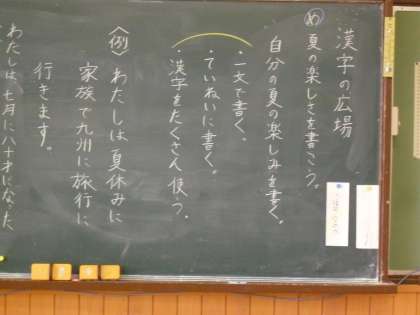 漢字の広場
め 夏の楽しさを書こう。
自分の夏の楽しみを書く。
・一文で書く。
・ていねいに書く。
・漢字をたくさん使う。
〈例〉わたしは夏休みに
家族で九州に旅行に
行きます。
わたしは、七月に八十才になった